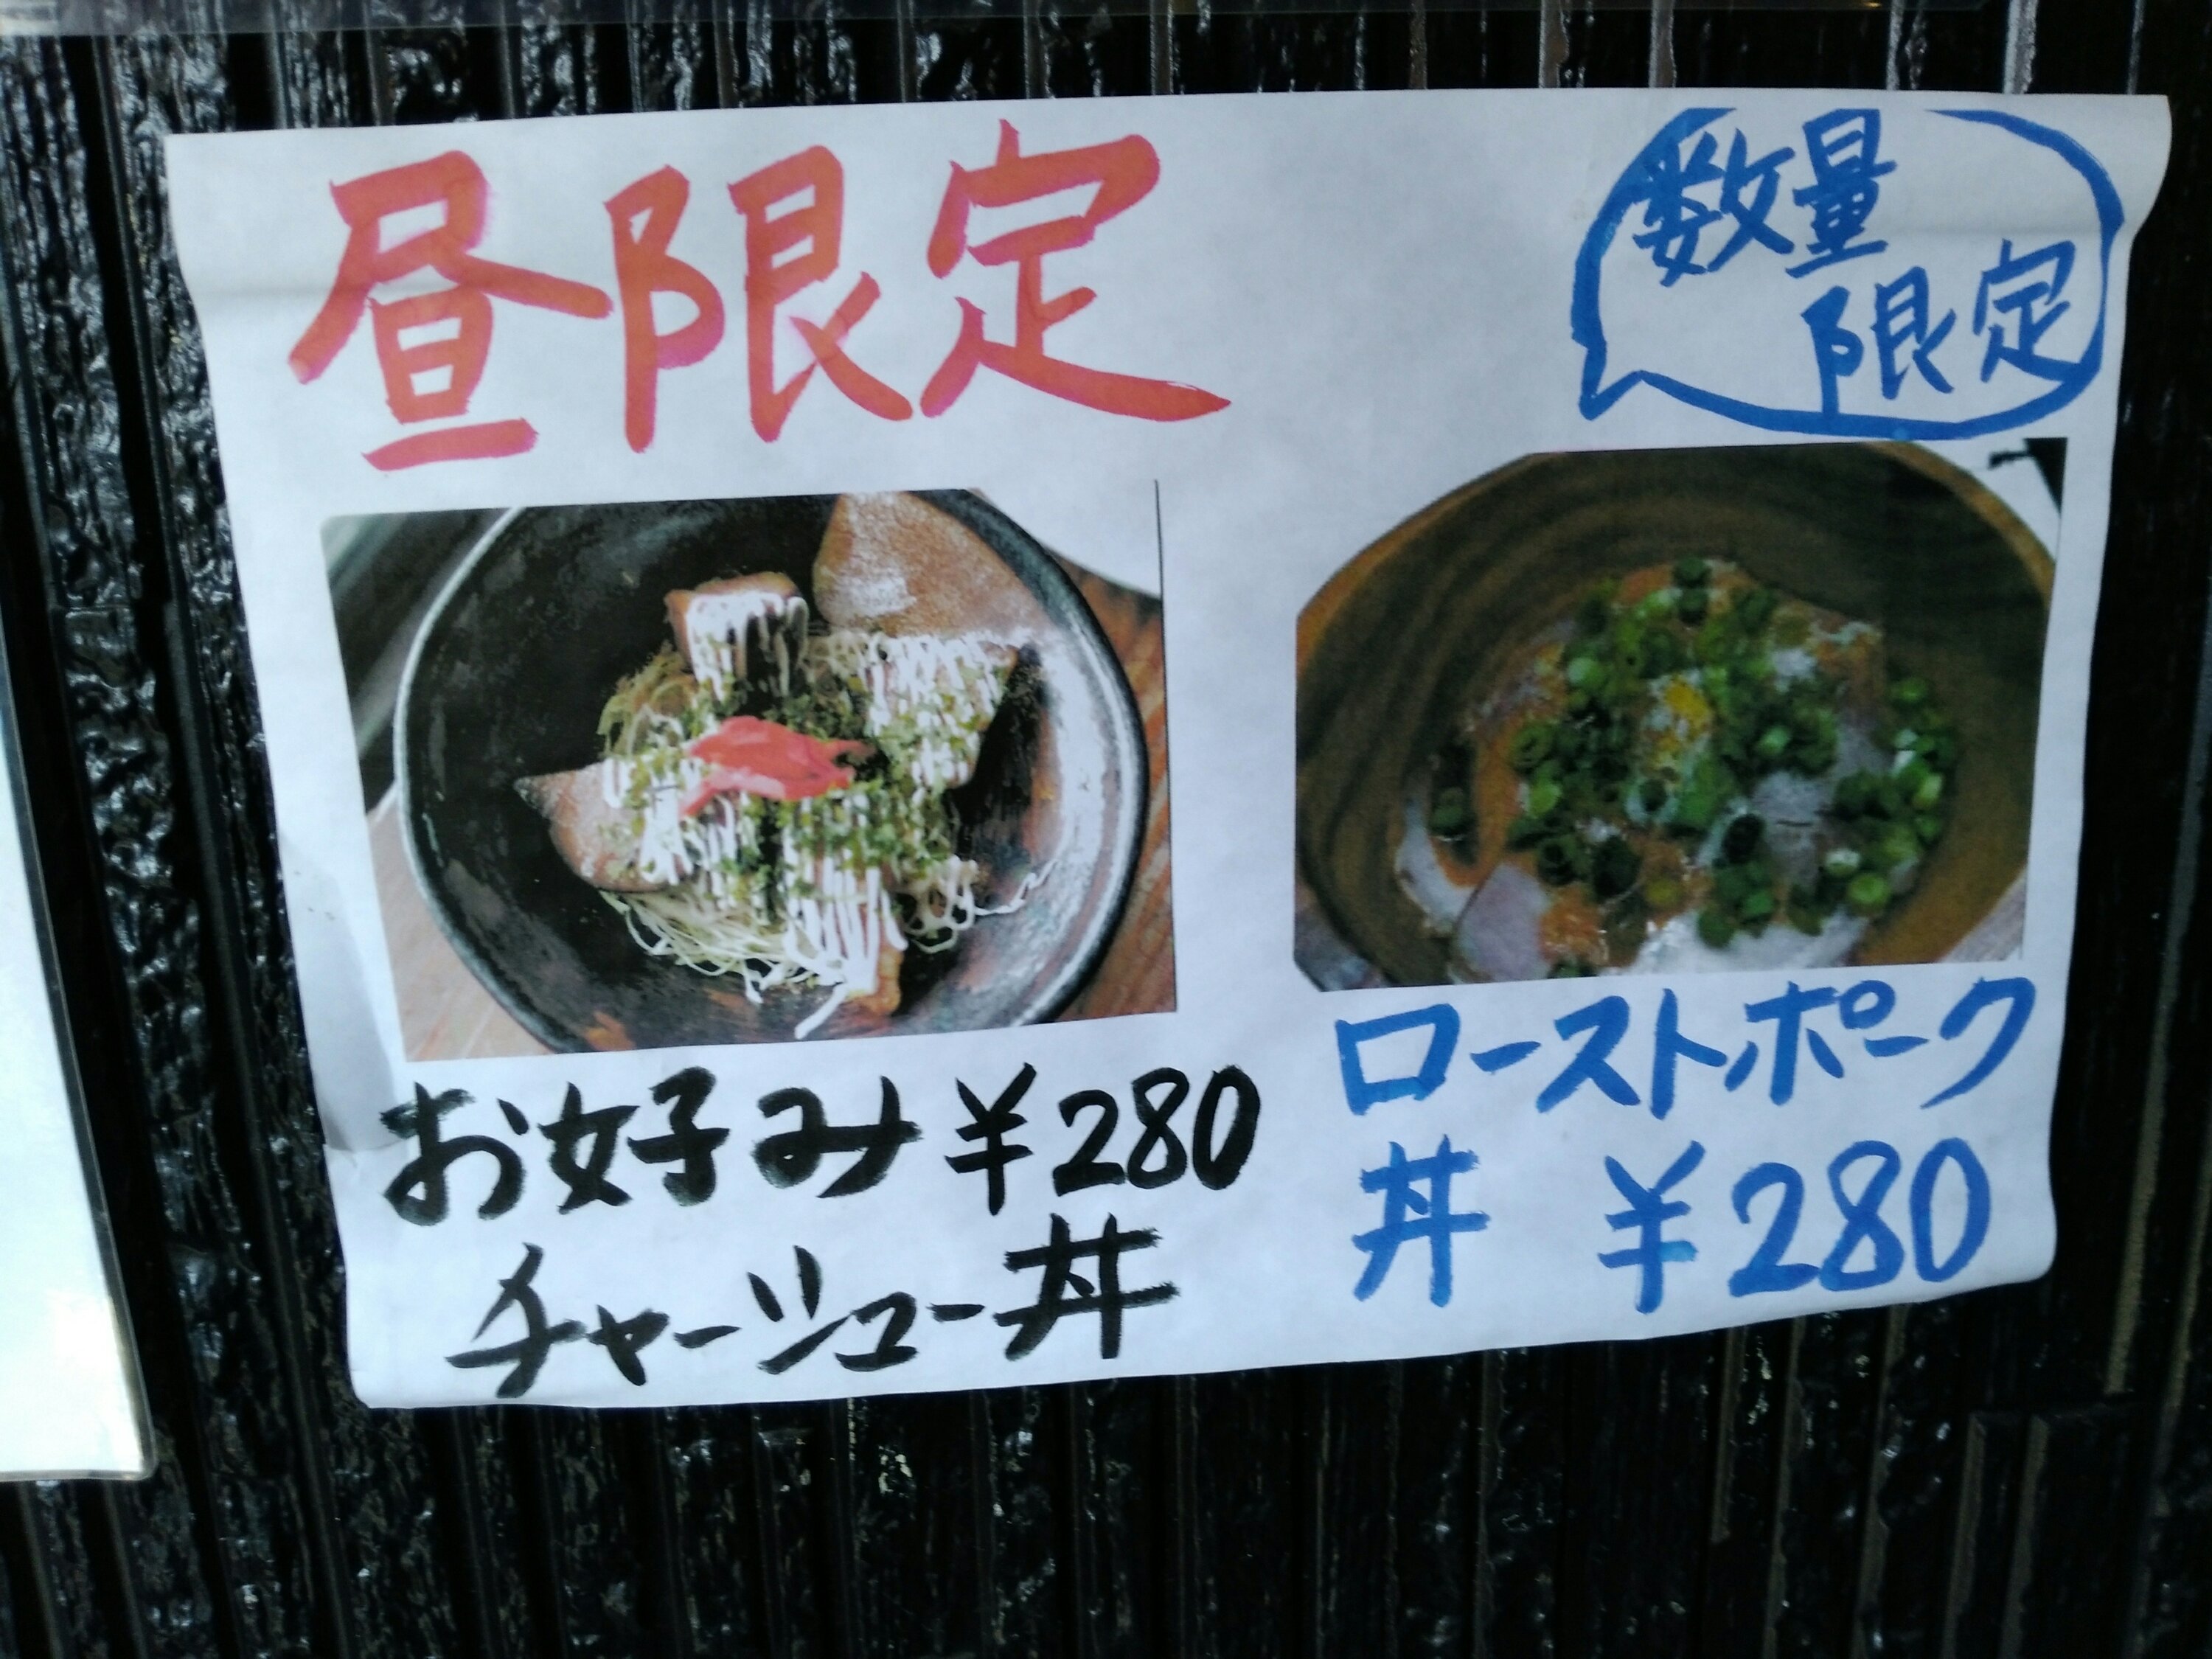 昼限定
数量
限定
お好み¥280
チャーシュー丼
ローストポーク
丼 ¥280